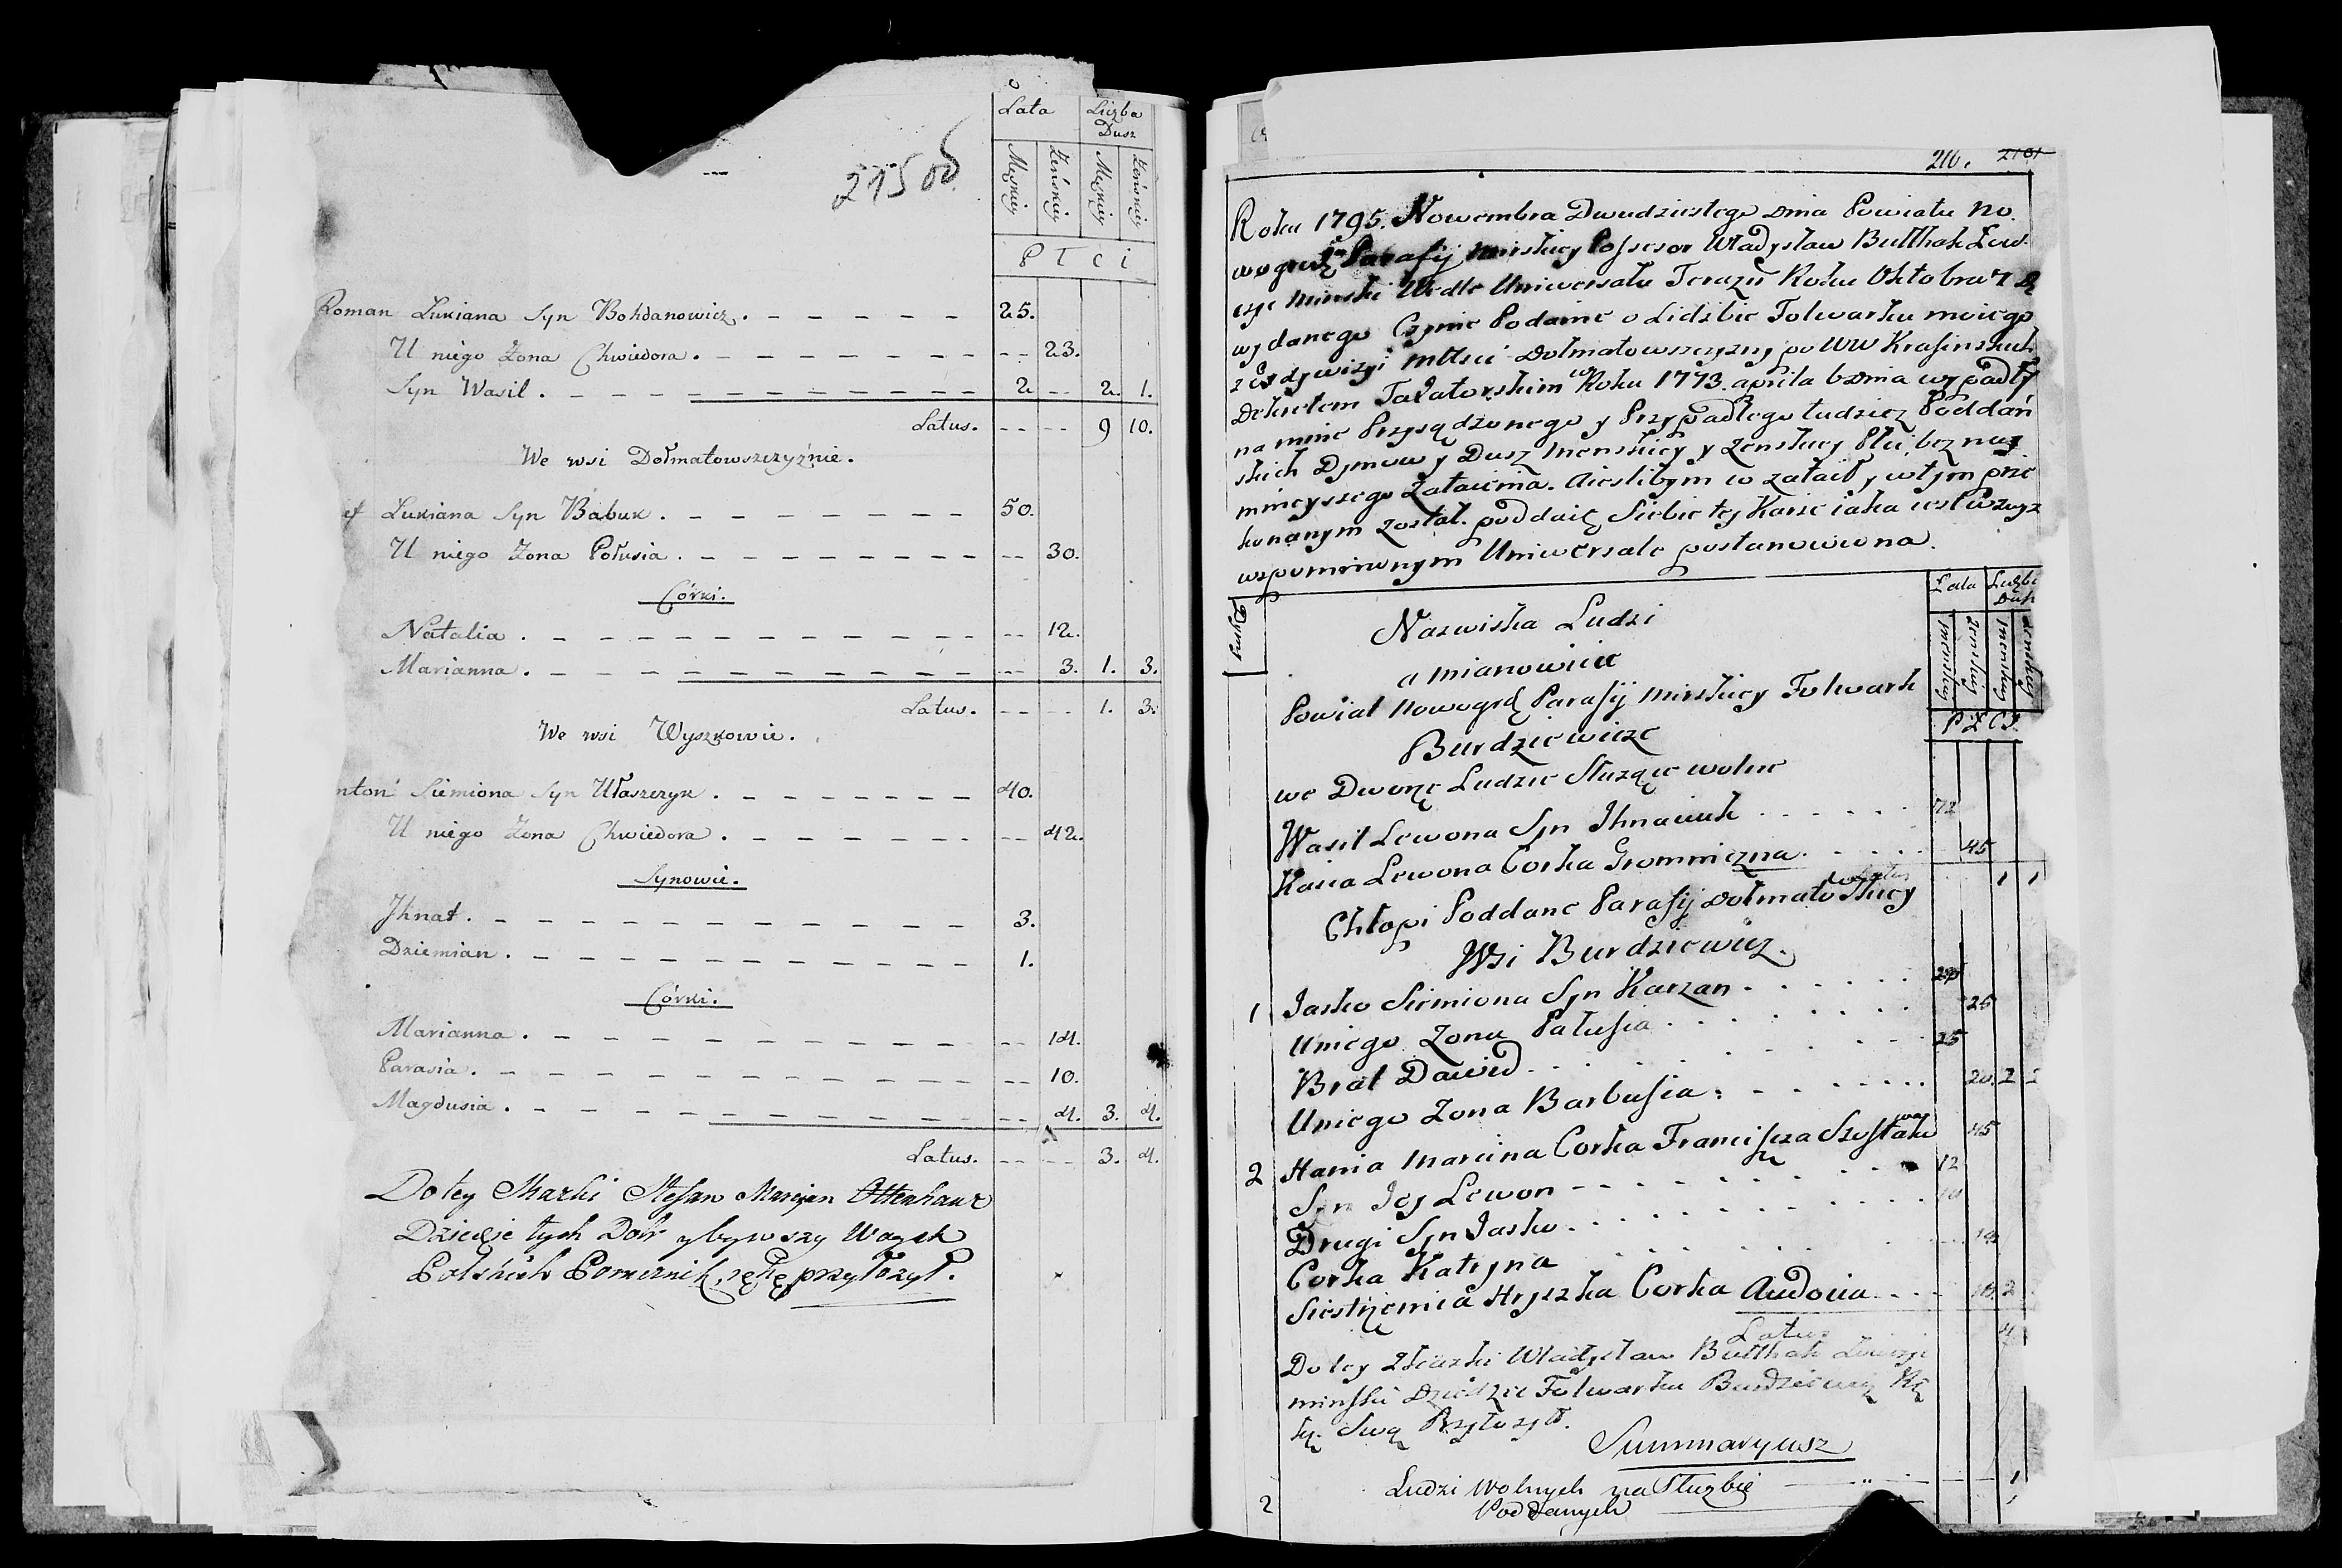 Lata Liczba Dusz
Męskiey Żeńskiey Męskiey Żeńskiey
2150d
P l c i
Roman Lukiana Syn Bohdanowicz. 25.
U niego Żona Chwiedora. 23.
Syn Wasil. 2 2. 1.
Latus. 9 10.
We wsi Dołmatowszczyźnie.
Lukiana Syn Babuk. 50.
U niego Żona Połusia. 30.
Córki.
Natalia. 12.
Marianna. 3. 1. 3.
Latus. 1. 3.
We wsi Wyszkowie.
nton Siemiona Syn Ułaszczyk. 40.
U niego Żona Chwiedora. 42.
Synowie.
Jhnat. 3.
Dziemian. 1.
Córki.
Marianna. 14.
Parasia. 10.
Magdusia. 4. 3. 4.
Latus. 3. 4.
Do tey Skazki Stefan Ottenhauz
Dziedzic tych Dobr y bywszy Woysk
Polskich rękę przyłożył.
216. 2161
Roku 1795. Nowembra Dwudziestego Dnia Powiatu No
wogrodz Parafij Mirskiey Possesor Władysław Bułthak Łow
czyc Minski Wedle Uniwersału Teraz Roku Oktobra 7 D
wydanego Czynie Podanie o Liczbie Folwarku moiego
z Exdywizyi Dołmatowszczyzny po WW Krasinskich
Dekretem Taxatorskim w Roku 1773. aprila 6 Dnia wypadły
na mnie Przysądzonego y Przypadłego tudziez Poddań
skich Dymow y Dusz Menskiey y Zenskiey Płci, bez nay
mnieyszego Zataienia. A iesli bym co zataił y w tym prze
konanym został. poddaię Siebie tey Karze iaka iest w zwyz
wspomnionym Uniwersale postanowiona.
Dymy
Lata Liczba Dusz
Nazwiska Ludzi
a mianowicie
Powiat Nowogrd Parafij Mirskiey Folwark
Burdziewicze
P Ł C I
we Dworzę Ludzie Służące wolne
Wasil Lewona Syn Jhnaciuk 72
Kasia Lewona Corka Gromniczna. 45
Latus 1 1
Chłopi Poddane Parafij Dołmatowskiey
Wsi Burdziewicz.
1 Jasko Siemiona Syn Karzan
U niego Zona Pałusia 25
Brat Dawid 25
U niego Zona Barbusia: 20. 2 2
2 Hania Marcina Corka Franciszka Szostakowa 45
Syn Jey Lewon 12
Drugi Syn Jasko 10
Corka Katryna
Siestrzenica Hryszka Corka Audocia 2
Latus 4
Do tey Skazki Władysław Bułthak Łowczyc
Minski Dziedzic Folwarku Burdziewicz Rę
kę Swą Przyłozył.
Summaryusz
Ludzi Wolnych na Służbie 1
2 Poddanych